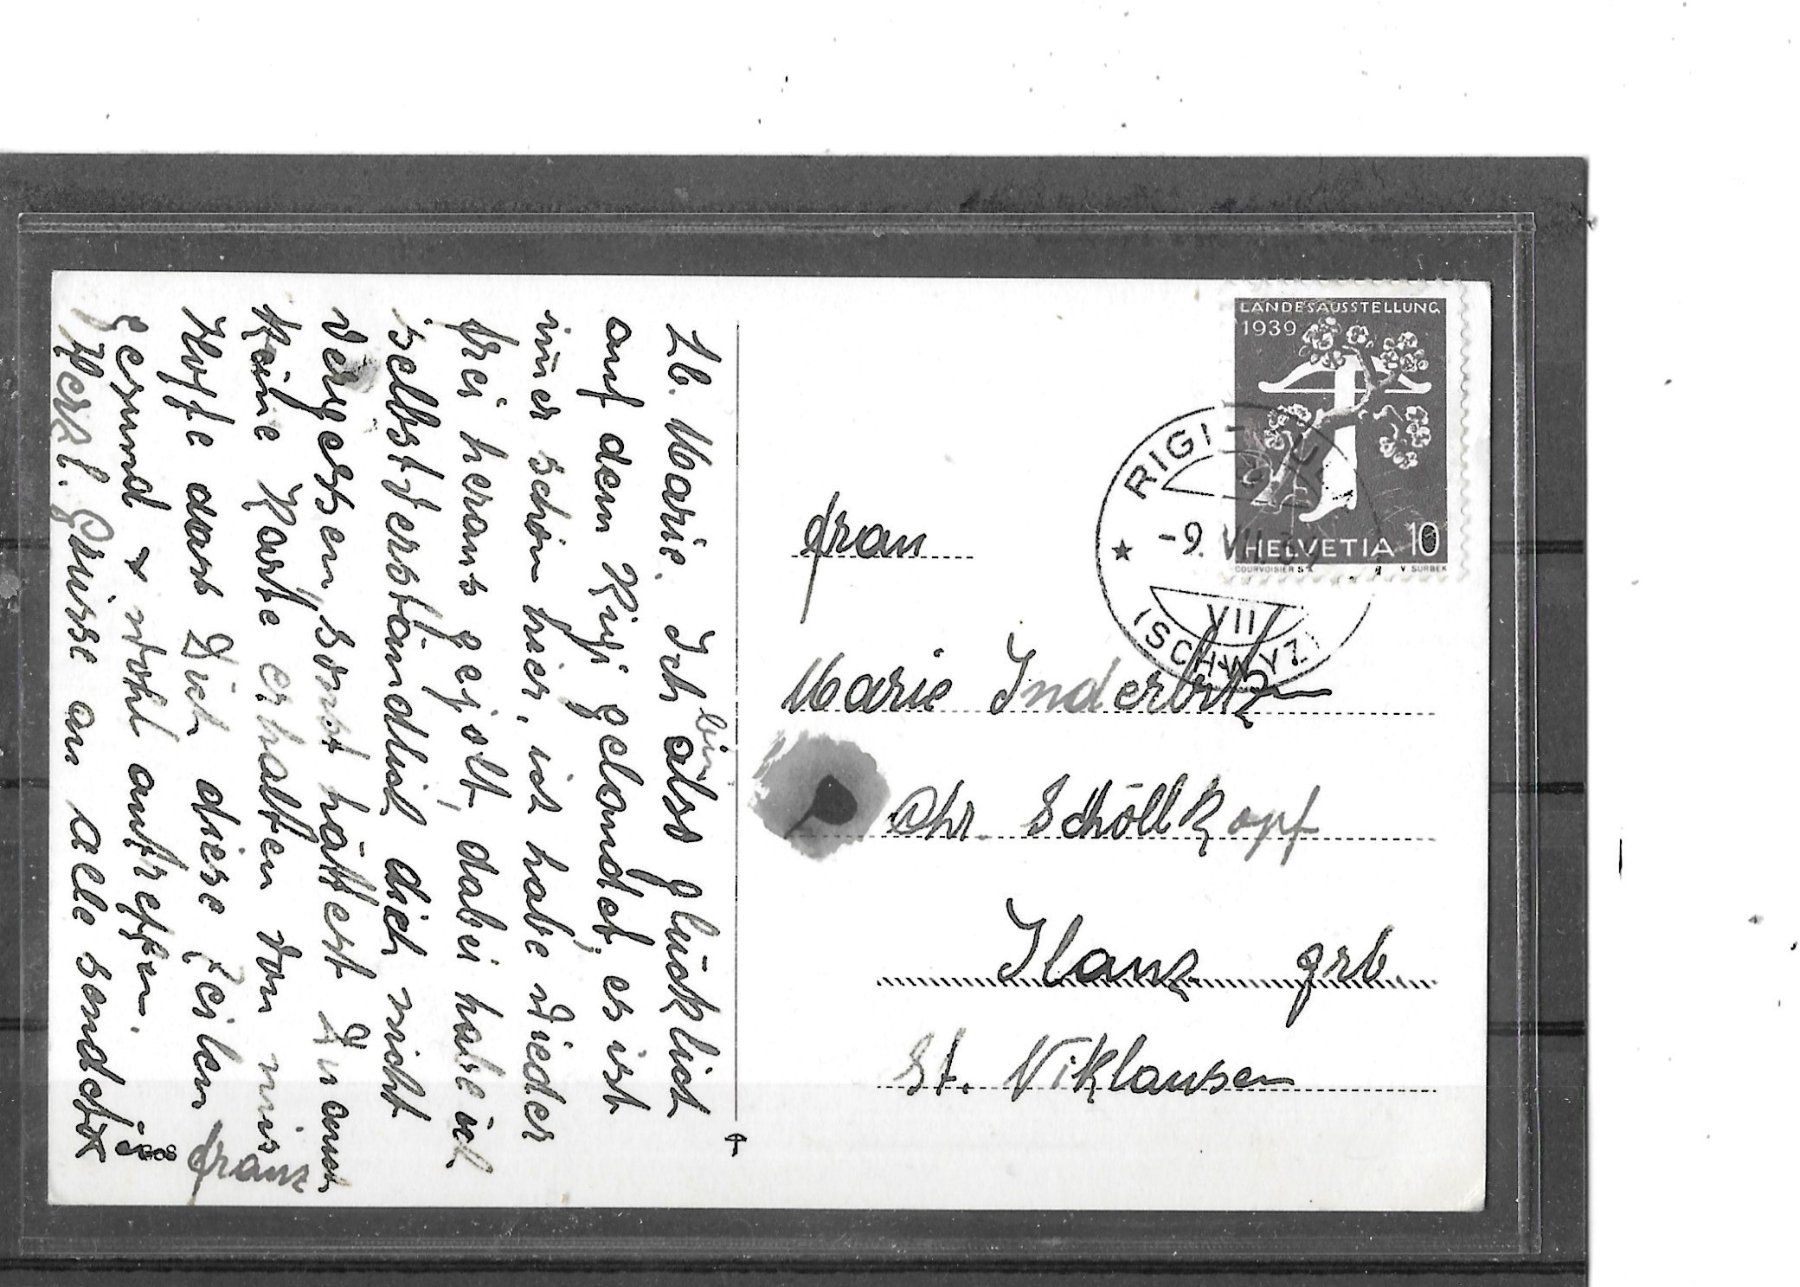 Lb. Marie. Ich bin also glücklich
auf dem Rigi gelandet, es ist
imer schön hier, ich habe wieder
frei heraus gejolt, dabei habe ich
selbstferständlich dich nicht
vergessen sonst hättest Du auch
Keine Karte erhalten von mir
Hoffe dass Dich diese Zeilen
gesund & wohl antreffen.
Herzl. Grüsse an alle sendet
Franz
LANDESAUSSTELLUNG
1939
HELVETIA 10
COURVOISIER S.A. V. SURBEK
RIGI-
-9. VII. 39
VII
(SCHWYZ)
Frau
Marie Inderbitz
Chr. Schöllkopf
Ilanz grb.
St. Niklausen